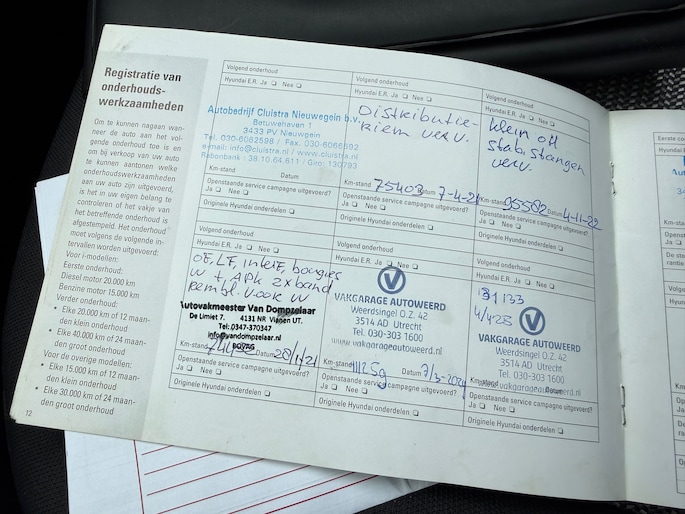 Registratie van
onderhouds-
werkzaamheden
Om te kunnen nagaan wan-
neer de auto aan het vol-
gende onderhoud toe is en
om bij verkoop van uw auto
te kunnen aantonen welke
onderhoudswerkzaamheden
aan uw auto zijn uitgevoerd,
is het in uw eigen belang te
controleren of het vakje van
het betreffende onderhoud is
afgestempeld. Het onderhoud
moet volgens de volgende in-
tervallen worden uitgevoerd:
Voor i-modellen:
Eerste onderhoud:
Diesel motor 20.000 km
Benzine motor 15.000 km
Verder onderhoud:
• Elke 20.000 km of 12 maan-
den klein onderhoud
• Elke 40.000 km of 24 maan-
den groot onderhoud
Voor de overige modellen:
• Elke 15.000 km of 12 maan-
den klein onderhoud
• Elke 30.000 km of 24 maan-
den groot onderhoud
12
Volgend onderhoud
Hyundai E.R. Ja Nee
Autobedrijf Cluistra Nieuwegein b.v.
Betuwehaven 1
3433 PV Nieuwegein
Tel. 030-6062598 / Fax. 030-6066692
email: info@cluistra.nl / www.cluistra.nl
Rabobank : 38.10.64.611 / Giro: 130793
Km-stand Datum
Openstaande service campagne uitgevoerd?
Ja Nee
Originele Hyundai onderdelen
Volgend onderhoud
Hyundai E.R. Ja Nee
Distributie-
riem verv.
Km-stand 75403 Datum 7-4-21
Openstaande service campagne uitgevoerd?
Ja Nee
Originele Hyundai onderdelen
Volgend onderhoud
Hyundai E.R. Ja Nee
klein oh
stab, stangen
verv.
Km-stand 95582 Datum 4-11-22
Openstaande service campagne uitgevoerd?
Ja Nee
Originele Hyundai onderdelen
Volgend onderhoud
Hyundai E.R. Ja Nee
OF, LF, interF, bougies
w + APK 2x band
rembl. v.ook w
Autovakmeester Van Dompzelaar
De Limiet 7. 4131 NR Vianen UT.
Tel: 0347-370347
info@vandompzelaar.nl
BOVAG
Km-stand Datum 28/1/21
Openstaande service campagne uitgevoerd?
Ja Nee
Originele Hyundai onderdelen
Volgend onderhoud
Hyundai E.R. Ja Nee
VAKGARAGE AUTOWEERD
Weerdsingel O.Z. 42
3514 AD Utrecht
Tel. 030-303 1600
www.vakgarageautoweerd.nl
Km-stand Datum
Openstaande service campagne uitgevoerd?
Ja Nee
Originele Hyundai onderdelen
Volgend onderhoud
Hyundai E.R. Ja Nee
VAKGARAGE AUTOWEERD
Weerdsingel O.Z. 42
3514 AD Utrecht
Tel. 030-303 1600
www.vakgarageautoweerd.nl
Km-stand Datum
Openstaande service campagne uitgevoerd?
Ja Nee
Originele Hyundai onderdelen